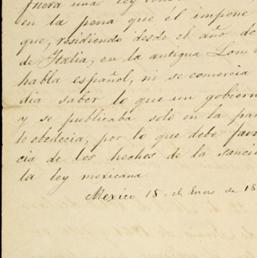 fuera una ley
en la pena que él impone
que, residiendo desde el año de
de Italia, en la antigua Lom
habla español, ni se comercia
dia saber lo que un gobiern
y se publicaba solo en la par
te obedecia, por lo que debe favo
cia de los hechos de la sanci
la ley mexicana
Mexico 18 de Enero de 18